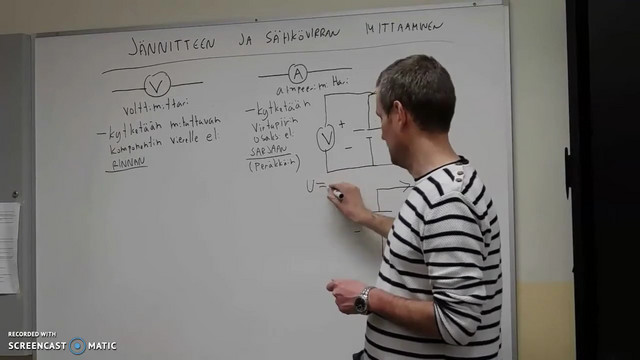 JÄNNITTEEN JA SÄHKÖVIRRAN MITTAAMINEN
V
volttimittari
– kytketään mitattavan
komponentin vierelle el.
RINNAN
A
ampeerimittari
– kytketään
virtapiirin
osaksi el.
SARJAAN
(peräkkäin)
V
+
–
U =
–
RECORDED WITH
SCREENCAST MATIC